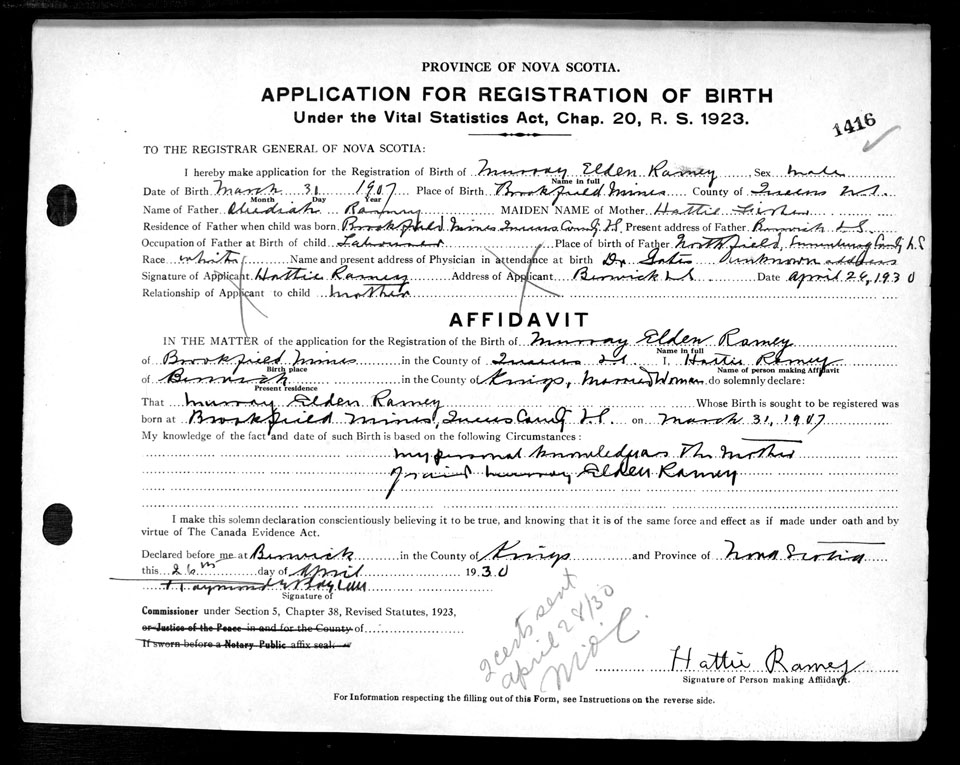 PROVINCE OF NOVA SCOTIA.
APPLICATION FOR REGISTRATION OF BIRTH
Under the Vital Statistics Act, Chap. 20, R. S. 1923.
1416
TO THE REGISTRAR GENERAL OF NOVA SCOTIA:
I hereby make application for the Registration of Birth of Murray Elden Ramey Sex male
Name in full
Date of Birth March 31 1907 Place of Birth Brookfield Mines County of Queens N.S.
Month Day Year
Name of Father Obediah Ramey MAIDEN NAME of Mother Hattie
Residence of Father when child was born Brookfield Mines Queens County N.S. Present address of Father Berwick N.S.
Occupation of Father at Birth of child Labourer Place of Birth of Father Northfield, Lunenburg County N.S
Race white Name and present address of Physician in attendance at birth Dr. Gates unknown address
Signature of Applicant Hattie Ramey Address of Applicant Berwick N.S. Date April 26, 1930
Relationship of Applicant to child mother
AFFIDAVIT
IN THE MATTER of the application for the Registration of the Birth of Murray Elden Ramey
Name in full
of Brookfield Mines in the County of Queens N.S. I, Hattie Ramey
Birth place Name of person making Affidavit
of Berwick in the County of Kings, Married Woman do solemnly declare:
Present residence
That Murray Elden Ramey Whose Birth is sought to be registered was
born at Brookfield Mines, Queens County N.S. on March 31, 1907
My knowledge of the fact and date of such Birth is based on the following Circumstances:
My personal knowledge as the Mother
of said Murray Elden Ramey
I make this solemn declaration conscientiously believing it to be true, and knowing that it is of the same force and effect as if made under oath and by
virtue of The Canada Evidence Act.
Declared before me at Berwick in the County of Kings and Province of Nova Scotia
this 26th day of April 1930
Signature of
Commissioner under Section 5, Chapter 38, Revised Statutes, 1923,
or Justice of the Peace in and for the County of
If sworn before a Notary Public affix seal
2 certs sent
April 28/30
Hattie Ramey
Signature of Person making Affidavit.
For Information respecting the filling out of this Form, see Instructions on the reverse side.